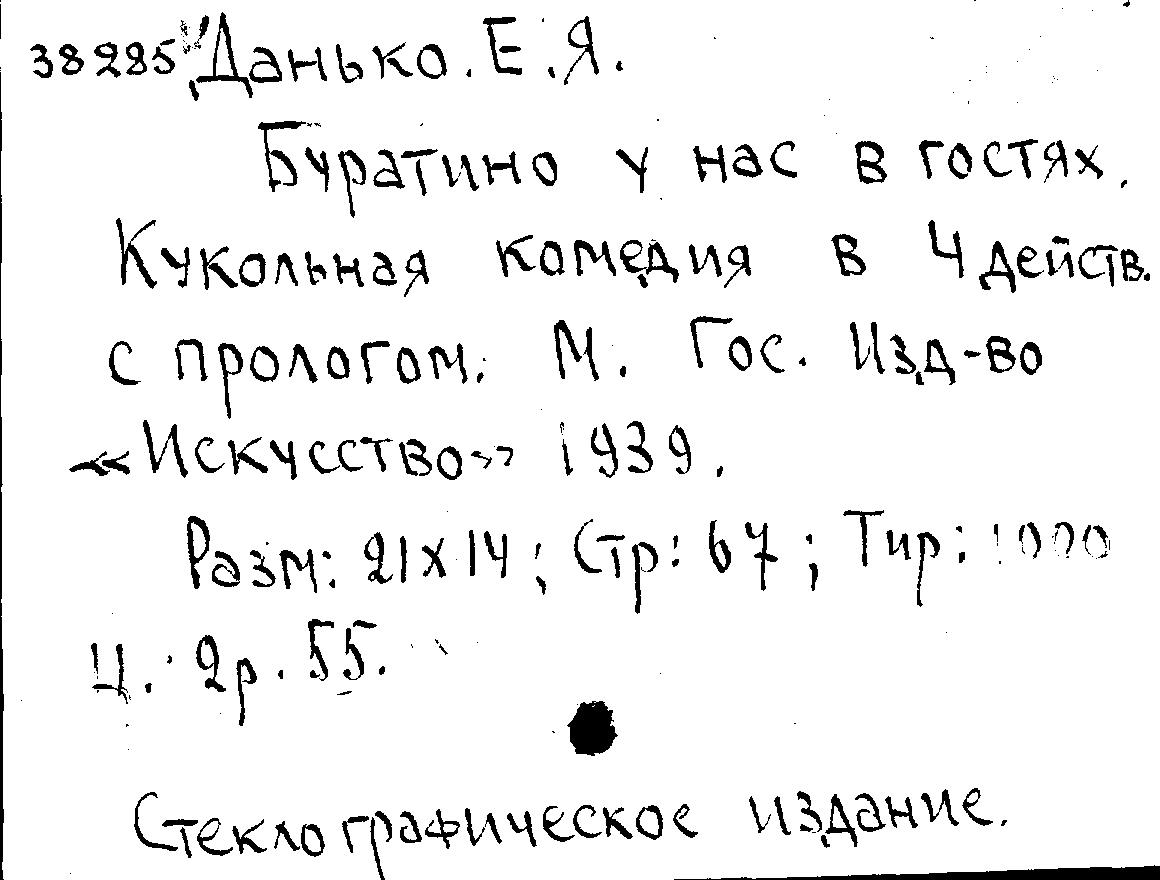 38285 Данько. Е. Я.
Буратино у нас в гостях.
Кукольная комедия в 4 действ.
с прологом. М. Гос. Изд-во
«Искусство» 1939.
Разм: 21х14; Стр: 67; Тир: 1000
Ц. 2р. 55.
Стеклографическое издание.